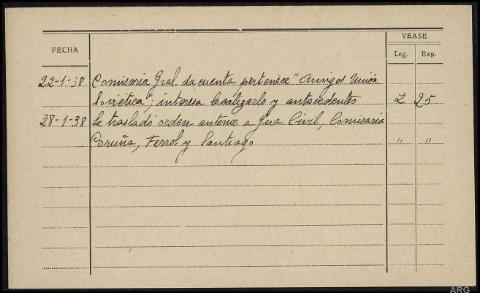 VEASE
FECHA
Leg. Exp.
22-1-38 Comisaria Gral. da cuenta pertenece "Amigos Unión
Soviética"; interesa localizarlo y antecedentes 2 25
28-1-38 Se trasladó orden anterior a Gua. Civil, Comisaria
Coruña, Ferrol y Santiago " "
ARG